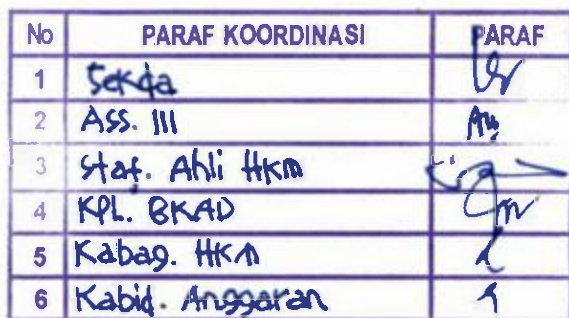 No PARAF KOORDINASI PARAF
1 Sekda
2 Ass. III
3 Staf. Ahli HKM
4 KPL. BKAD
5 Kabag. HKM
6 Kabid. Anggaran